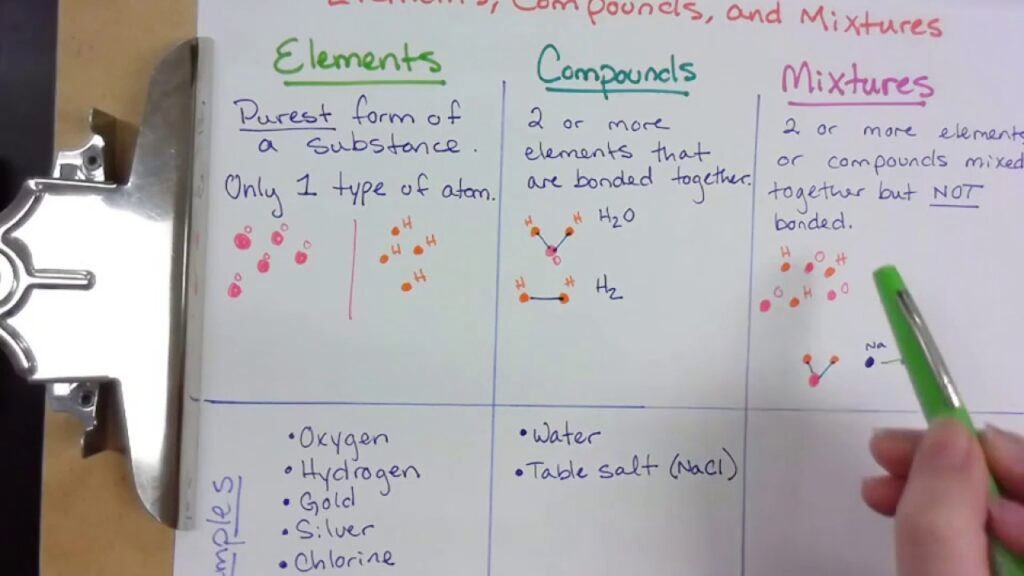 Elements, Compounds, and Mixtures
Elements
Purest form of
a substance.
Only 1 type of atom.
O O O O O
H H H H
Compounds
2 or more
elements that
are bonded together.
H H H₂O
O
H H H₂
Mixtures
2 or more elements
or compounds mixed
together but NOT
bonded.
H O H
O H O
Na
• Oxygen
• Hydrogen
• Gold
• Silver
• Chlorine
• Water
• Table salt (NaCl)